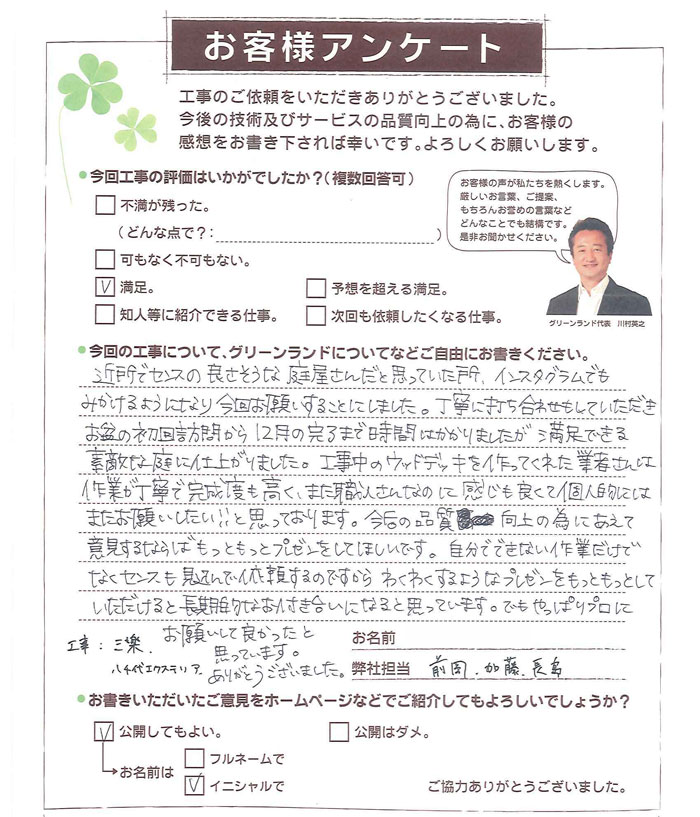 お客様アンケート
工事のご依頼をいただきありがとうございました。
今後の技術及びサービスの品質向上の為に、お客様の
感想をお書き下されば幸いです。よろしくお願いします。
●今回工事の評価はいかがでしたか？（複数回答可）
不満が残った。
（どんな点で？：　）
可もなく不可もない。
満足。
予想を超える満足。
知人等に紹介できる仕事。
次回も依頼したくなる仕事。
お客様の声が私たちを熱くします。
厳しいお言葉、ご提案、
もちろんお誉めの言葉など
どんなことでも結構です。
是非お聞かせください。
グリーンランド代表　川村英之
●今回の工事について、グリーンランドについてなどご自由にお書きください。
近所でセンスの良さそうな庭屋さんだと思っていた所、インスタグラムでも
みかけるようになり今回お願いすることにしました。丁寧に打ち合わせもしていただき
お盆の初回訪問から12月の完了まで時間はかかりましたが満足できる
素敵な庭に仕上がりました。工事中のウッドデッキを作ってくれた業者さんは
作業が丁寧で完成度も高く、また職人さんなのに感じも良くて個人的には
またお願いしたい!!と思っております。今后の品質 向上の為にあえて
意見するならばもっともっとプレゼンをしてほしいです。自分でできない作業だけで
なくセンスも見込んで依頼するのですからわくわくするようなプレゼンをもっともっとして
いただけると長期的なお付き合いになると思っています。でもやっぱりプロに
お願いして良かったと
思っています。
ありがとうございました。
工事：三樂.
八千代エクステリア.
お名前
弊社担当　前田.加藤.長島
●お書きいただいたご意見をホームページなどでご紹介してもよろしいでしょうか？
公開してもよい。
公開はダメ。
お名前は
フルネームで
イニシャルで
ご協力ありがとうございました。